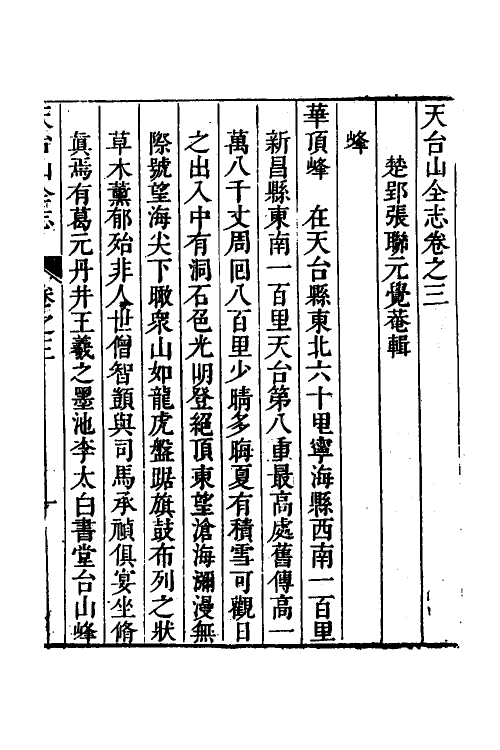 天台山全志卷之三
楚郢張聯元覺菴輯
峰
華頂峰　在天台縣東北六十里寧海縣西南一百里
新昌縣東南一百里天台第八重最高處舊傳高一
萬八千丈周回八百里少晴多晦夏有積雪可觀日
之出入中有洞石色光明登絕頂東望滄海瀰漫無
際號望海尖下瞰衆山如龍虎盤踞旗鼓布列之狀
草木薰郁殆非人世僧智顗與司馬承禎俱宴坐脩
眞焉有葛元丹井王羲之墨池李太白書堂台山峰
天台山全志　卷之三